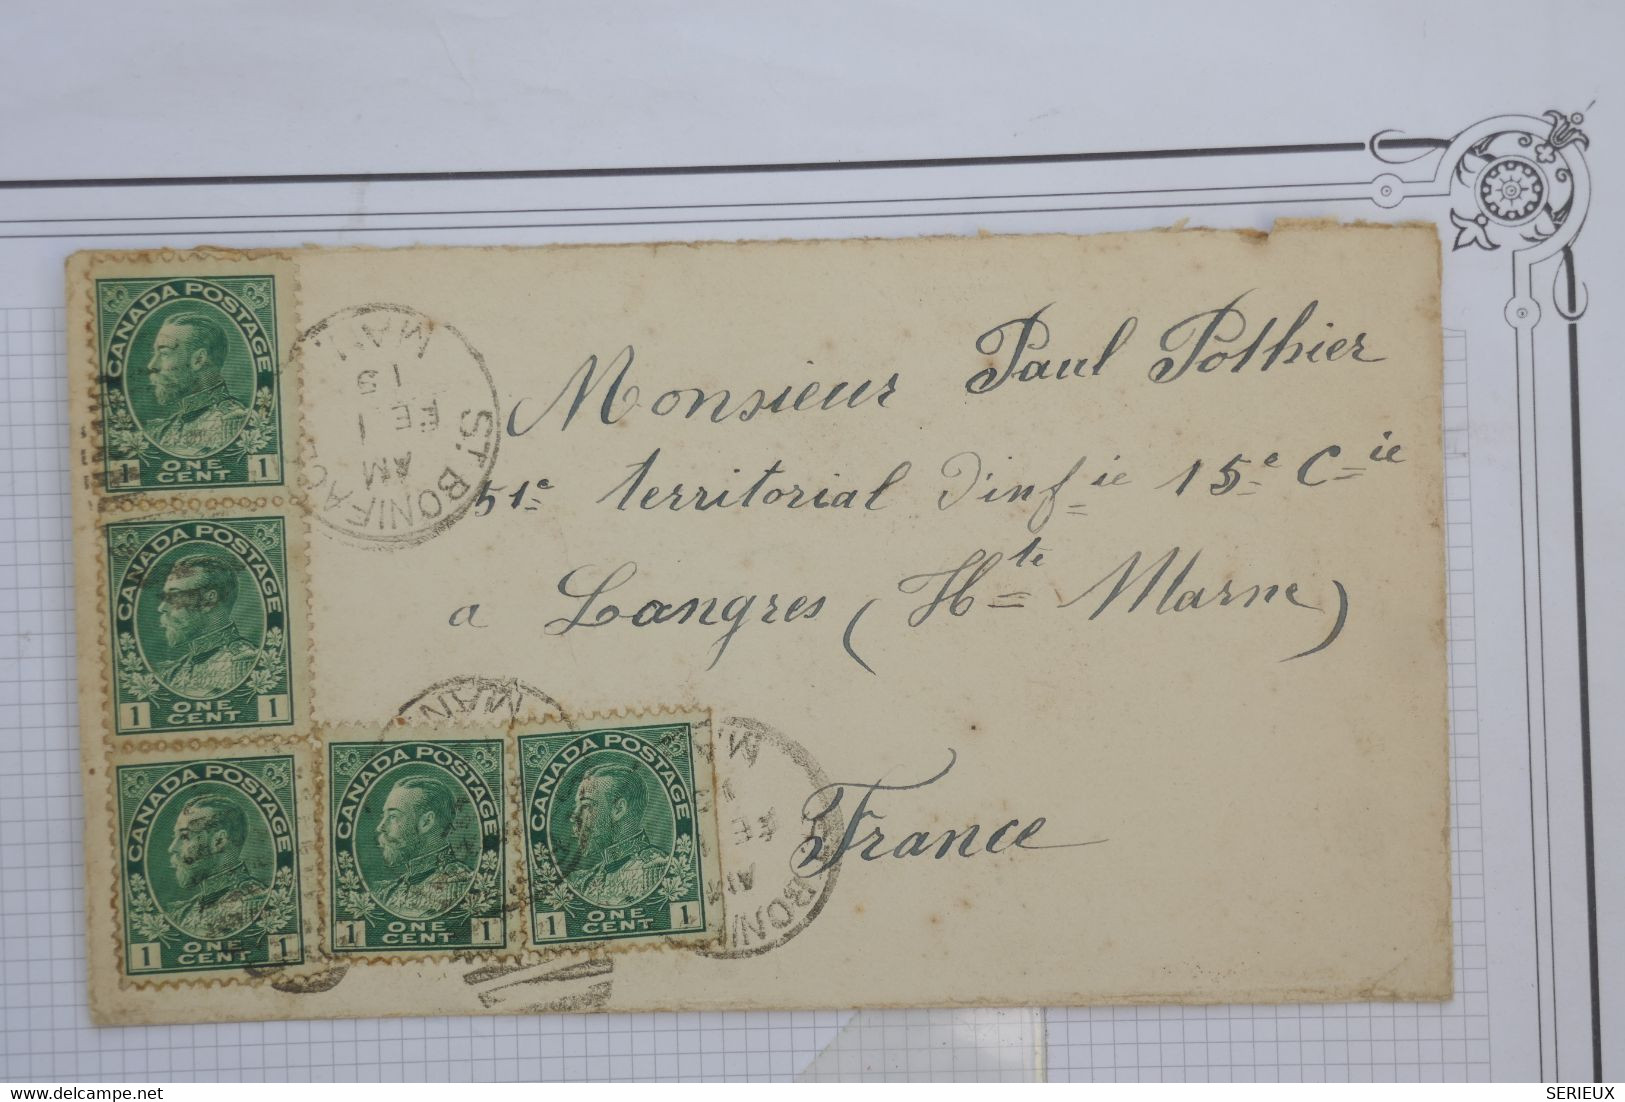 CANADA POSTAGE
1 ONE CENT 1
CANADA POSTAGE
1 ONE CENT 1
CANADA POSTAGE
1 ONE CENT 1
CANADA POSTAGE
1 ONE CENT 1
CANADA POSTAGE
1 ONE CENT 1
ST. BONIFACE
AM
1
FE
15
MAN.
Monsieur Paul Pothier
51e territorial d'infie 15e Cie
a Langres (Hte Marne)
France
MAN
BONI
AM
FE
delcampe.net
SERIEUX